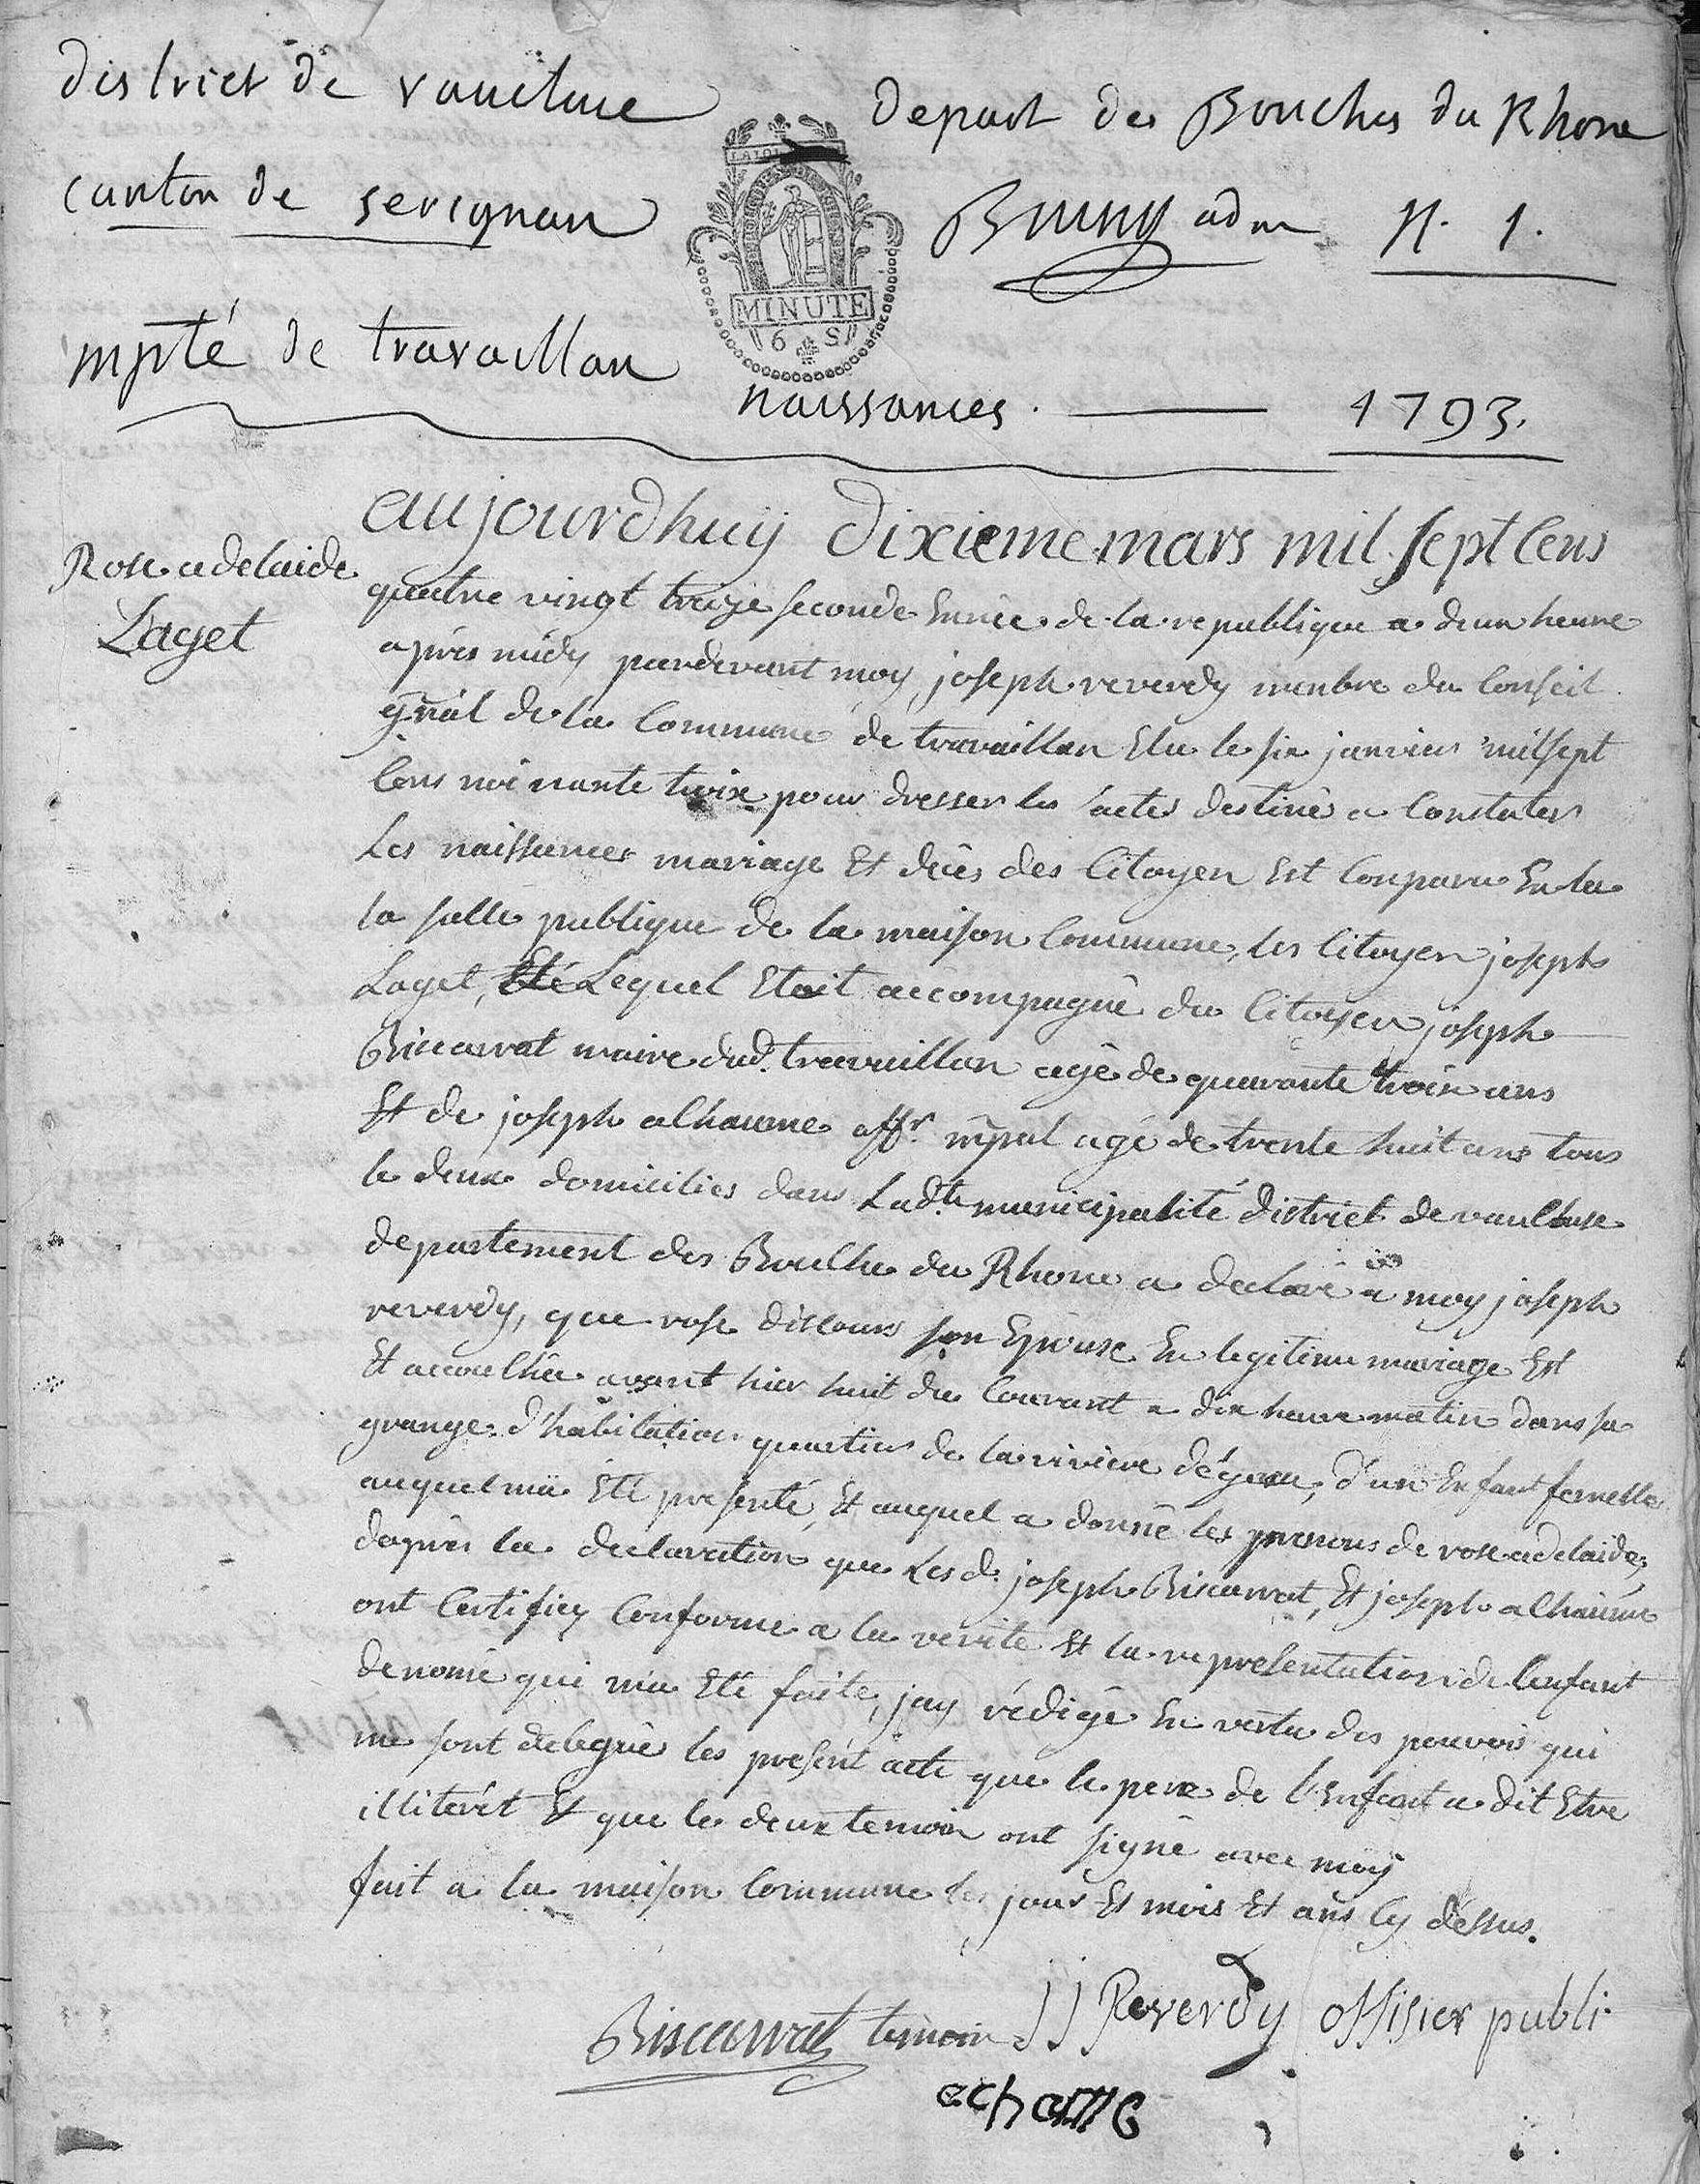 district de vaucluse
depart des Bouches du Rhone
canton de serignan
Bruny adm N. 1.
MINUTE
6 S
mpté de travaillan
naissances. 1793.
Rose adelaide
Laget
aujourdhuy dixieme mars mil sept Cens
quatre vingt treize seconde Année de la republique a deux heure
après midy pardevant moy joseph reverdy menbre du Conseil
gnâl de la Commune de travaillan Elu le six janvier milsept
Cens noinante troix pour dresser les actes destiné a Constater
Les naissances mariage Et décès des Citoyen Est Conparu En la
la salle publique de la maison Commune, les Citoyen joseph
Laget, Eté Lequel Etoit accompagné du Citoyen joseph
Biscarrat maire dud. travaillan agé de quarante troix ans
Et de joseph alhaume offr. mpal agé de trente huit ans tous
le deux domicilies dans Ladte municipalité district de vaucluse
departement des Bouche du Rhone a declaré a moy joseph
reverdy, que rose discours son Epouse En legitime mariage Est
Et accouchée avant hier huit du Courant a dix heure matin dans sa
grange d'habitation quartier de la riviere d'éguu, d'un Enfant femelle
auquel mà Eté presenté, Et auquel a donné les prenons de rose adelaide,
daprès la declaration que Les d. joseph Biscarrat, Et joseph alhaume
ont Certifiez Conforme a la verité Et la representation de l'enfant
denomé qui ma Eté faite, jay rédigé En vertu des pouvoir qui
me sont delegué les présent acte que le pere de l'Enfant a dit Etre
illiterét Et que le deux temoin ont signé avec moy
fait a la maison Commune les jour Et mois Et ans Cy déssus.
Biscarrat temoin JJ Reverdy offisier publi